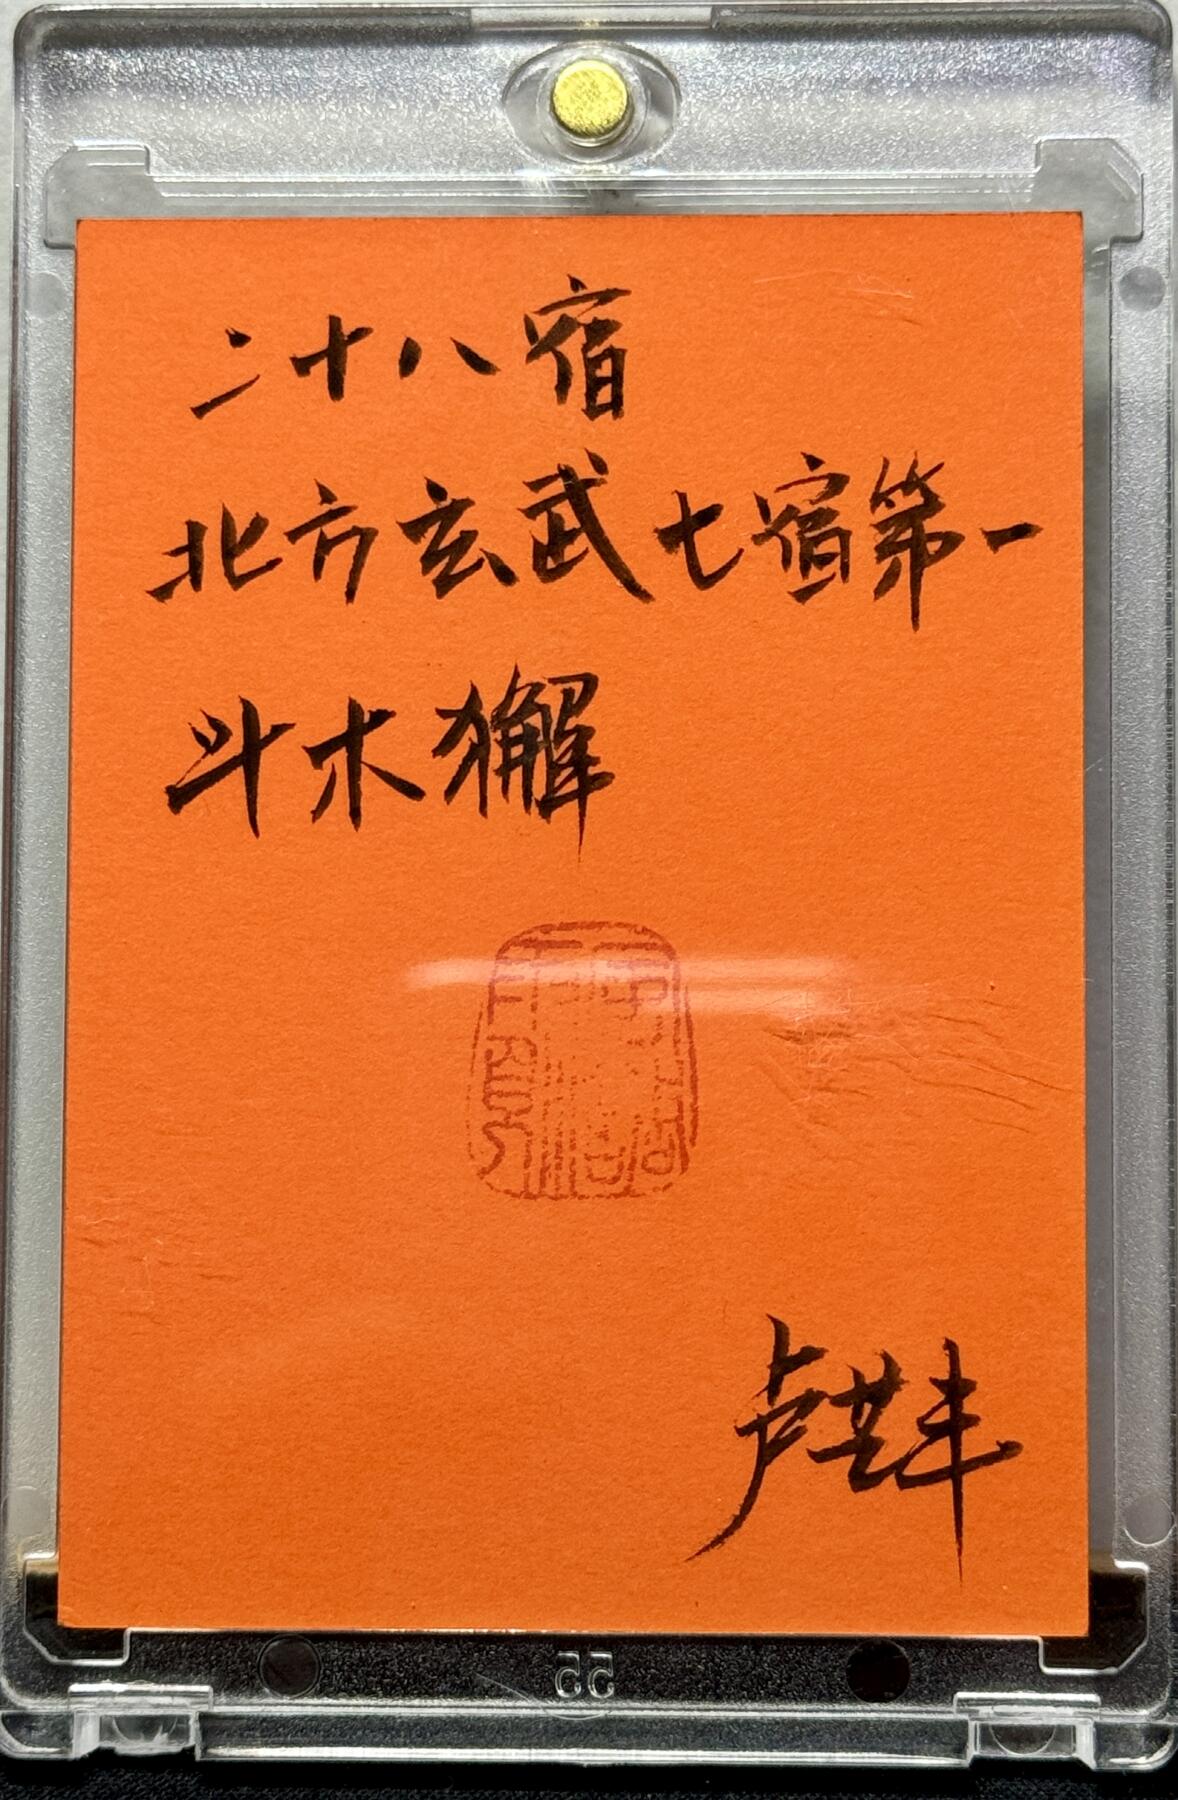 二十八宿
北方玄武七宿第一
斗木獬
卢世丰
55